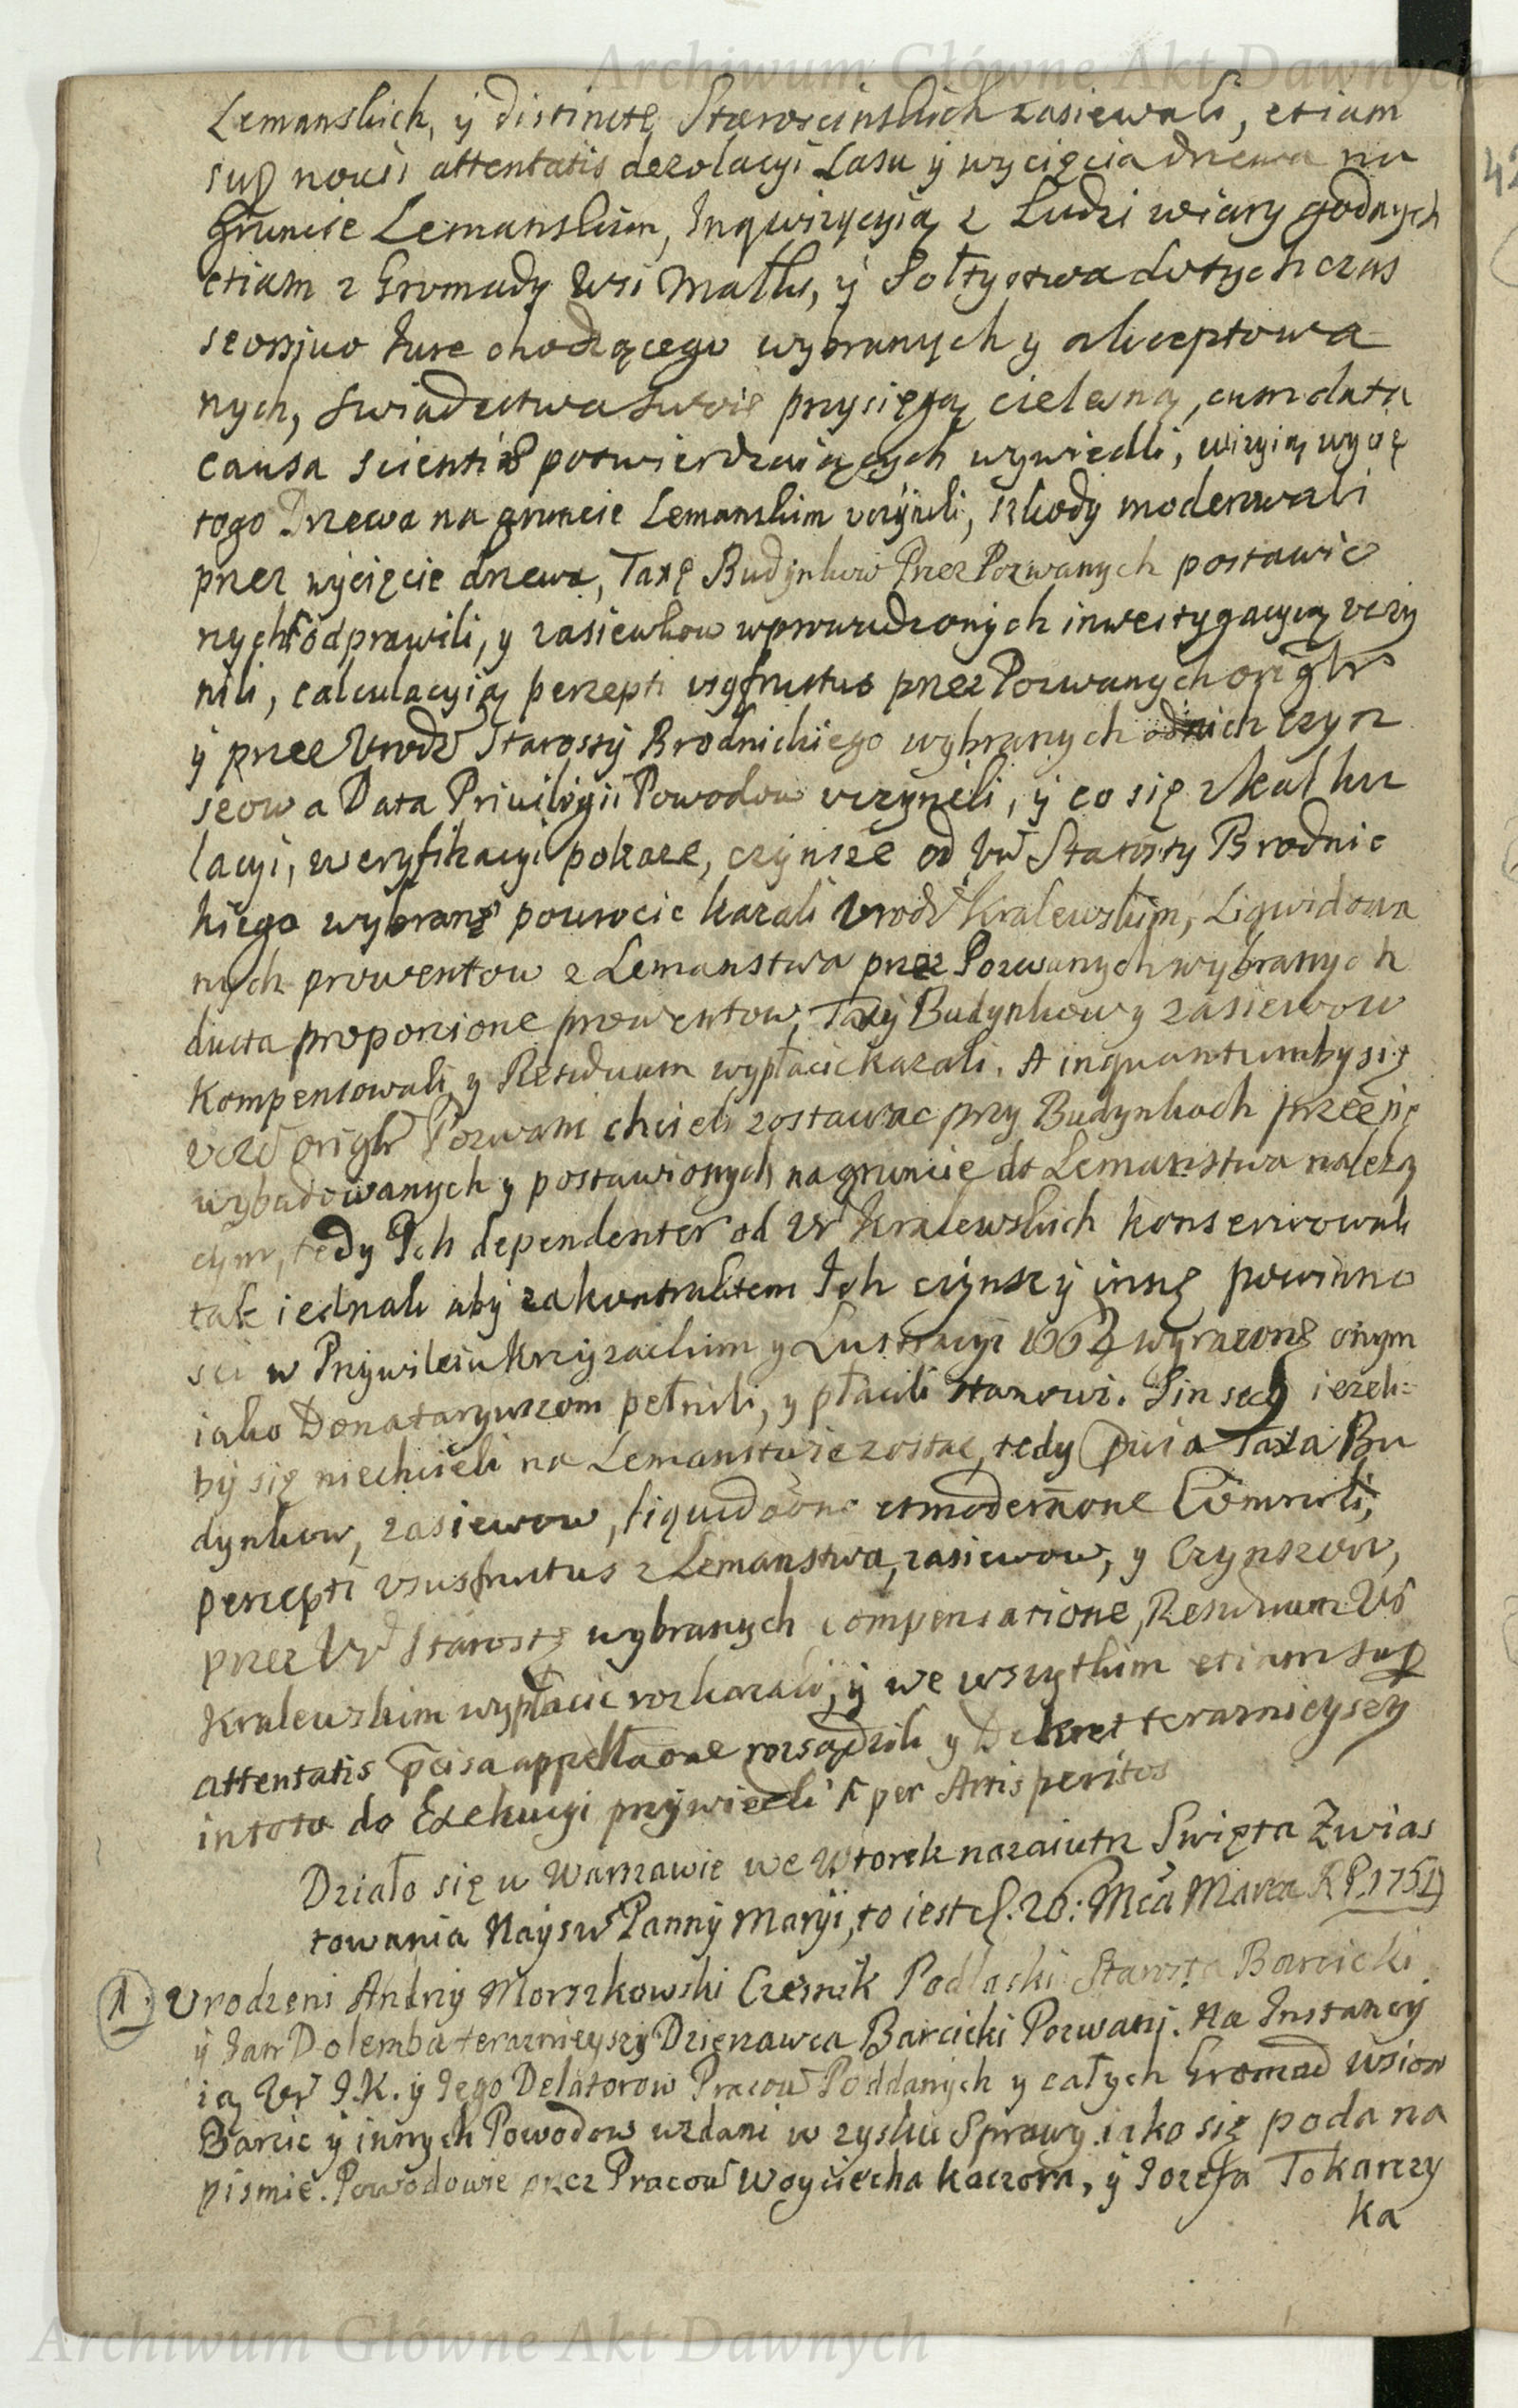 Archiwum Główne Akt Dawnych
Lemanskich, ÿ distinctę Staroscinskich zasiewali, etiam
sup novis attentatis dezolacyi Lasu ÿ wycięcia drzewa na
Gruncie Lemanskim, Inqwizycyią z Ludzi wiary godnych
etiam z Gromady Wsi Małki, ÿ Sołtystwa dotychczas
seorsivo Iure chodzącego wybranych y akceptowa
nych, swiadectwa swoie przysięgą cielesną, cum data
causa scientiæ potwierdzaiących wywiedli, wizyią wycię
tego Drzewa na gruncie Lemanskim uczÿnili, szkody moderowali
przez wÿcięcie drzewa, Taxę Budÿnkow Przez Pozwanych postawio
nych odprawili, y zasiewkow wprowadzonych inwestygacyią uczy
nili, calculacyią percepti usufructus przez Pozwanych origlr
ÿ przez Urodz Starosty Brodnickiego wybranych od nich czyn
szow a Data Privilegii Powodow uczyneli, ÿ co się z kalku
lacyi, weryfikacyi pokaze, czÿnsze od Ur Starosty Brodnic
kiego wybranę powrocic kazali Urodz Kralewskim, Liqwidowa
nych prowentow z Lemanstwa przez Pozwanych wybranych
ducta proporcione prowentow, Taxÿ Budynkow y zasiewow
Kompensowali y Residuum wypłacic kazali. A inquantumby się
origlr Pozwani chcieli zostawac przy Budynkach przez się
wybudowanych y postawionych na gruncie do Lemanstwa nalezą
cym, tedy Ich dependenter od Ur Kralewskich konserwowali
tak iednak abÿ za kontraktem Ich czÿnszÿ innę powinno
sci w Przywileiu Krzyzackim y Lustracyi 1664 wyrazonę onym
iako Donataryuszom pełnili, y płacili stanowi. Sin secꝫ iezeli=
by się niechcieli na Lemanstwie zostac, tedy Taxa Bu
dynkow, zasiewow,
percepti ususfructus z Lemanstwa, zasiewow, y Czynszow,
przez Ur Starostę wybranych compensatione, Residuum Ur
Kralewskim wypłacic rozkazali, ÿ we wszytkim etiam sup
attentatis pcisa appellaone rozsądzili y Dekret terazniejszy
in toto do Exekucyi przÿwiedli per Artis peritos
Działo się w Warszawie we Wtorek nazaiutrz Swięta Zwias
towania Nayśw Panny Maryi, to iest d. 26: Mca Marca R P. 1754
1. Urodzeni Andrzÿ Morszkowski Czesnik Podlaski Starosta Barcicki
ÿ Jan Dolemba terazniejszÿ Dzierzawca Barcicki Pozwani. Na Instancy
ią Ur I.K. ÿ Iego Delatorow Pracow Poddanych y całych Gromad Wsiow
Barcic ÿ innych Powodow wzdani w zysku Sprawy iako się poda na
pismie. Powodowie przez Pracow Woyciecha Kaczora, ÿ Iozefa Tokarczy
ka
Archiwum Główne Akt Dawnych